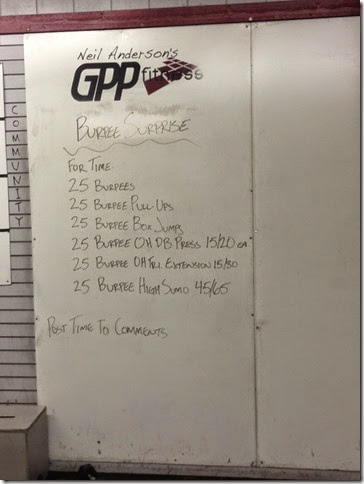 Neil Anderson's
GPP fitness
COMMUNITY
BURPEE SURPRISE
FOR TIME:
25 BURPEES
25 BURPEE PULL-UPS
25 BURPEE BOX JUMPS
25 BURPEE OH DB PRESS 15/20 EA
25 BURPEE OH TRI. EXTENSION 15/30
25 BURPEE HIGH SUMO 45/65
POST TIME TO COMMENTS